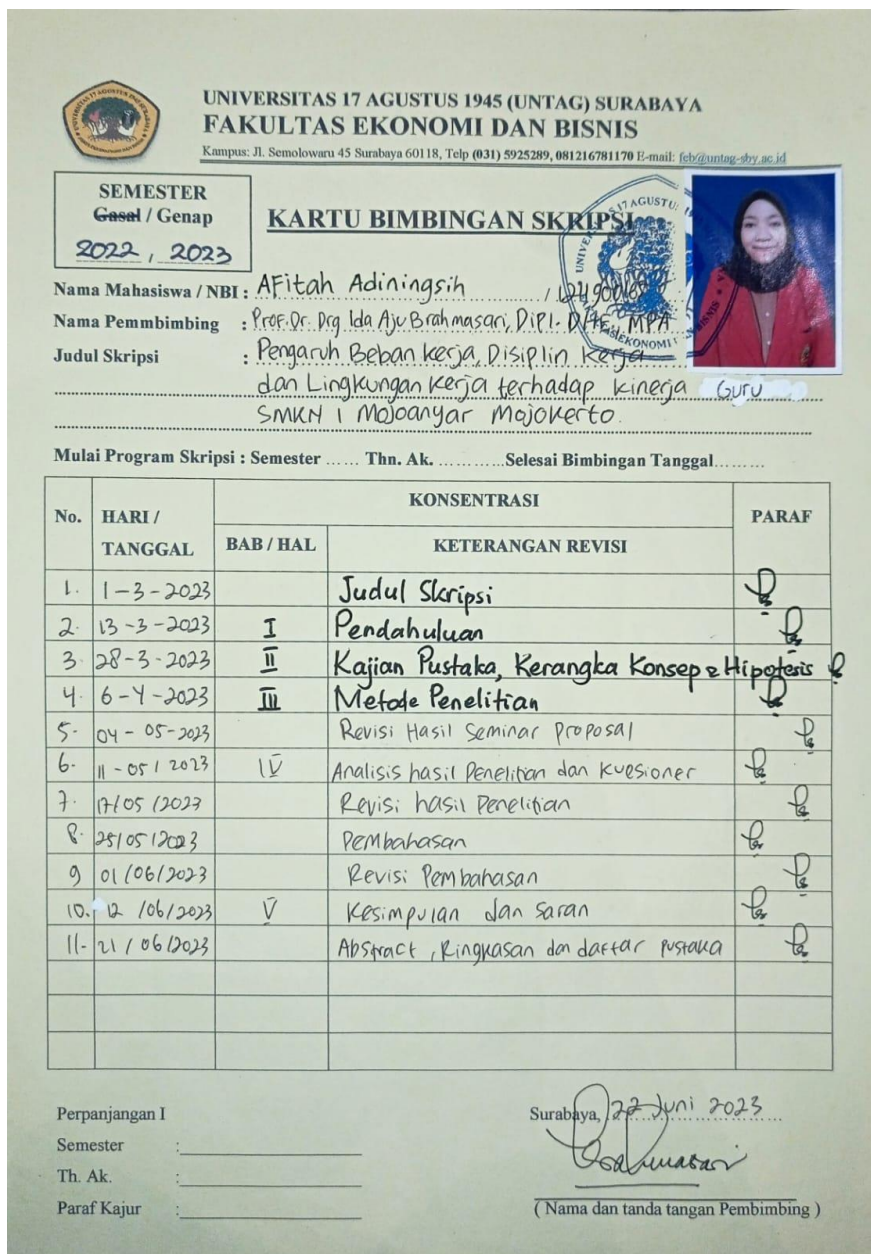 UNIVERSITAS 17 AGUSTUS 1945 (UNTAG) SURABAYA
FAKULTAS EKONOMI DAN BISNIS
Kampus: Jl. Semolowaru 45 Surabaya 60118, Telp (031) 5925289, 081216781170 E-mail: feb@untag-sby.ac.id
SEMESTER
Gasal / Genap
2022, 2023
KARTU BIMBINGAN SKRIPSI
Nama Mahasiswa / NBI : AFitah Adiningsih /
Nama Pemmbimbing : Prof. Dr. Drg. Ida Aju Brahmasari, Dipl. DHE, MPA
Judul Skripsi : Pengaruh Beban kerja, Disiplin Kerja
dan Lingkungan kerja terhadap kinerja Guru
SMKN 1 Mojoanyar Mojokerto.
Mulai Program Skripsi : Semester ...... Thn. Ak. ............Selesai Bimbingan Tanggal.........
No. HARI / TANGGAL KONSENTRASI PARAF
BAB / HAL KETERANGAN REVISI
1. 1-3-2023 Judul Skripsi
2. 13-3-2023 I Pendahuluan
3. 28-3-2023 II Kajian Pustaka, Kerangka Konsep & Hipotesis
4. 6-4-2023 III Metode Penelitian
5. 04-05-2023 Revisi Hasil Seminar Proposal
6. 11-05/2023 IV Analisis hasil Penelitian dan Kuesioner
7. 17/05/2023 Revisi hasil Penelitian
8. 25/05/2023 Pembahasan
9 01/06/2023 Revisi Pembahasan
10. 12/06/2023 V Kesimpulan dan saran
11. 21/06/2023 Abstract, Ringkasan dan daftar pustaka
Perpanjangan I
Semester :
Th. Ak. :
Paraf Kajur :
Surabaya, 22 Juni 2023
( Nama dan tanda tangan Pembimbing )